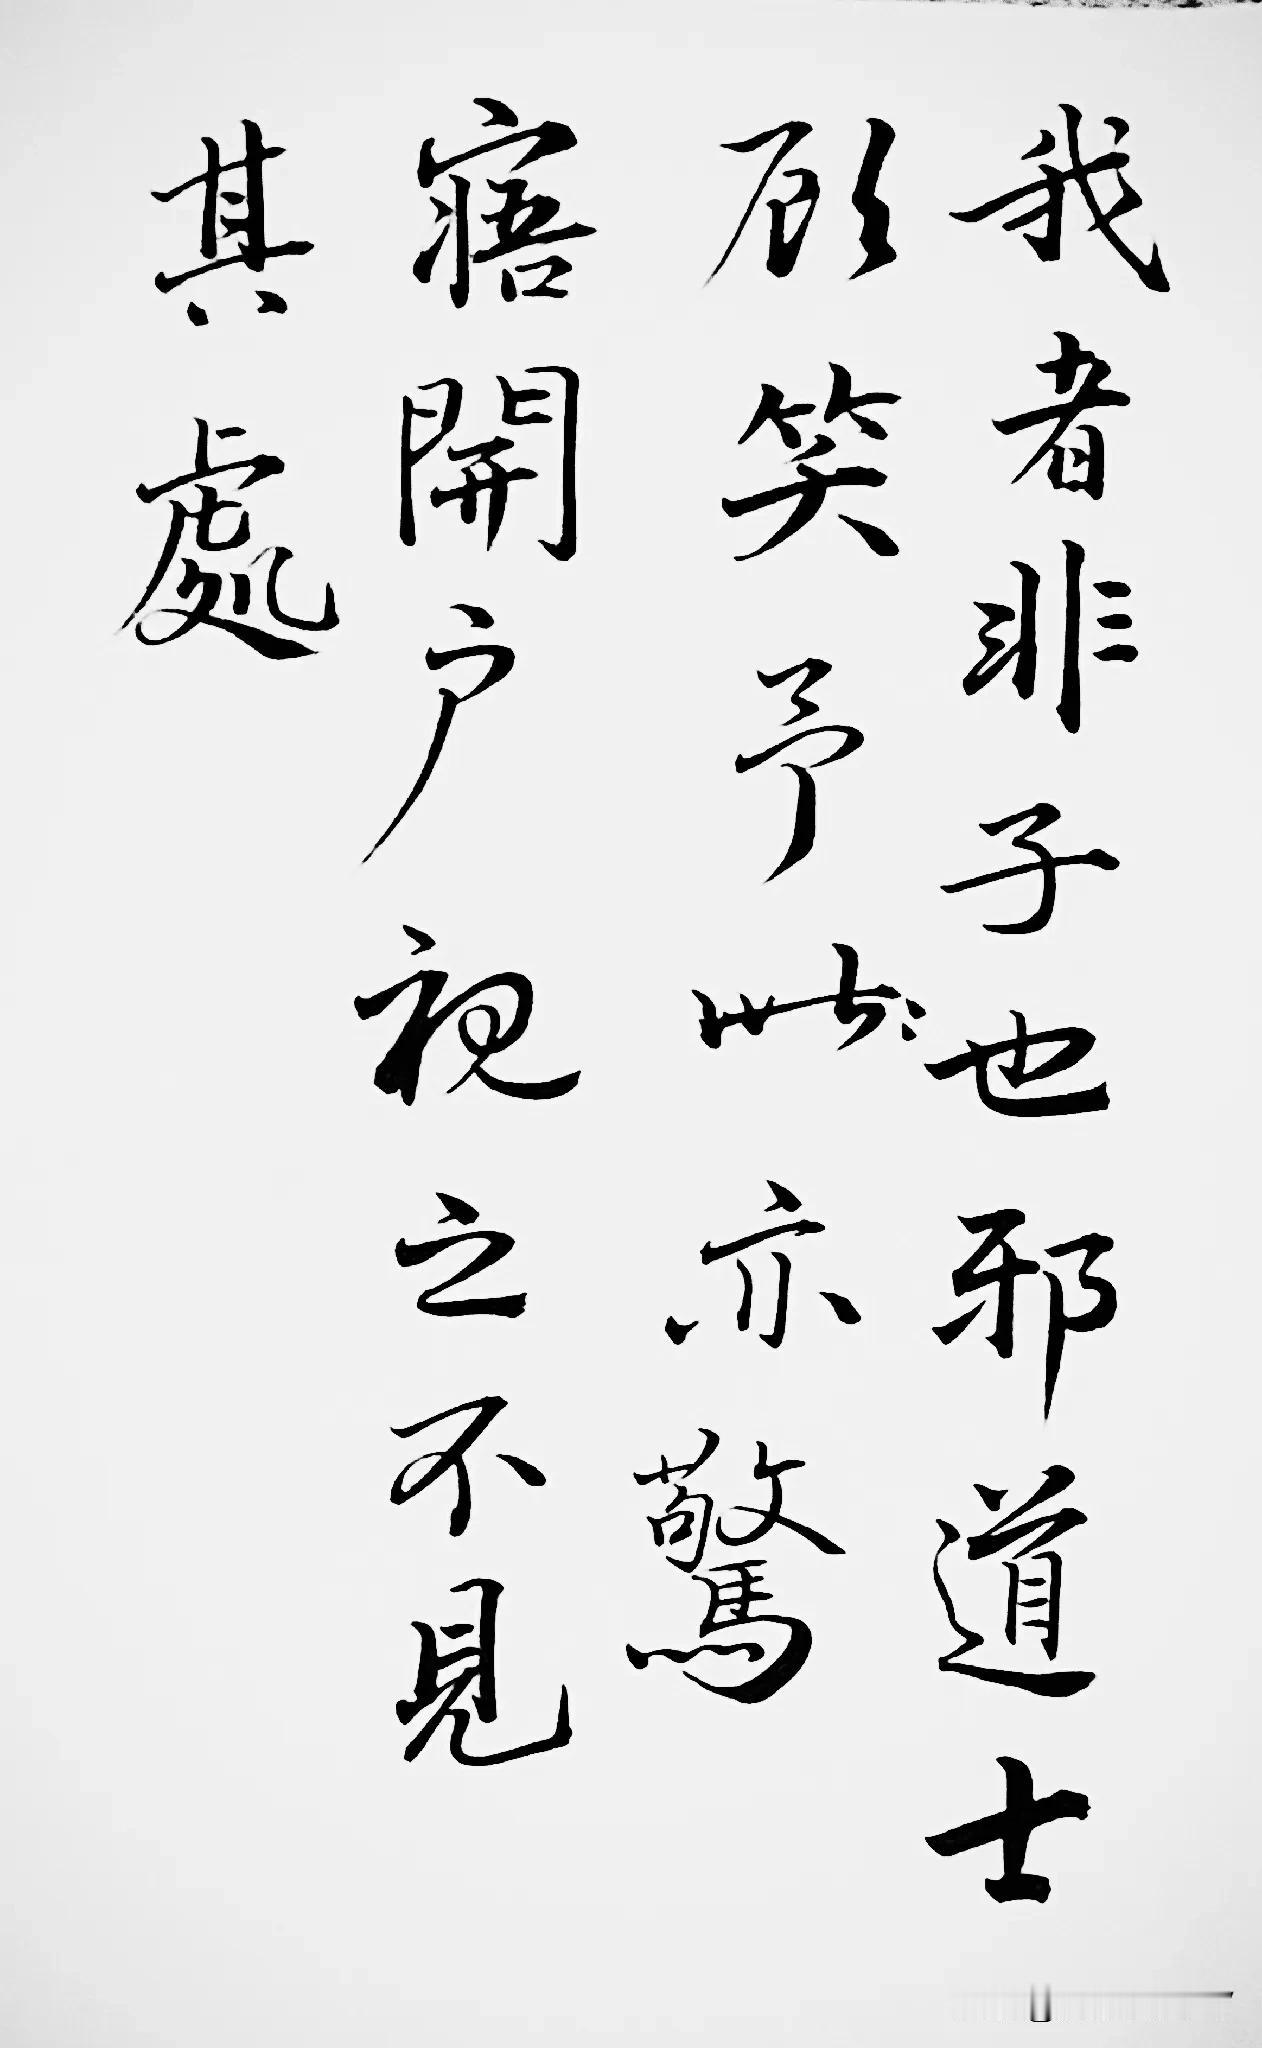 我者非子也邪道士
顾笑予𭕒亦驚
寤開户視之不見
其處